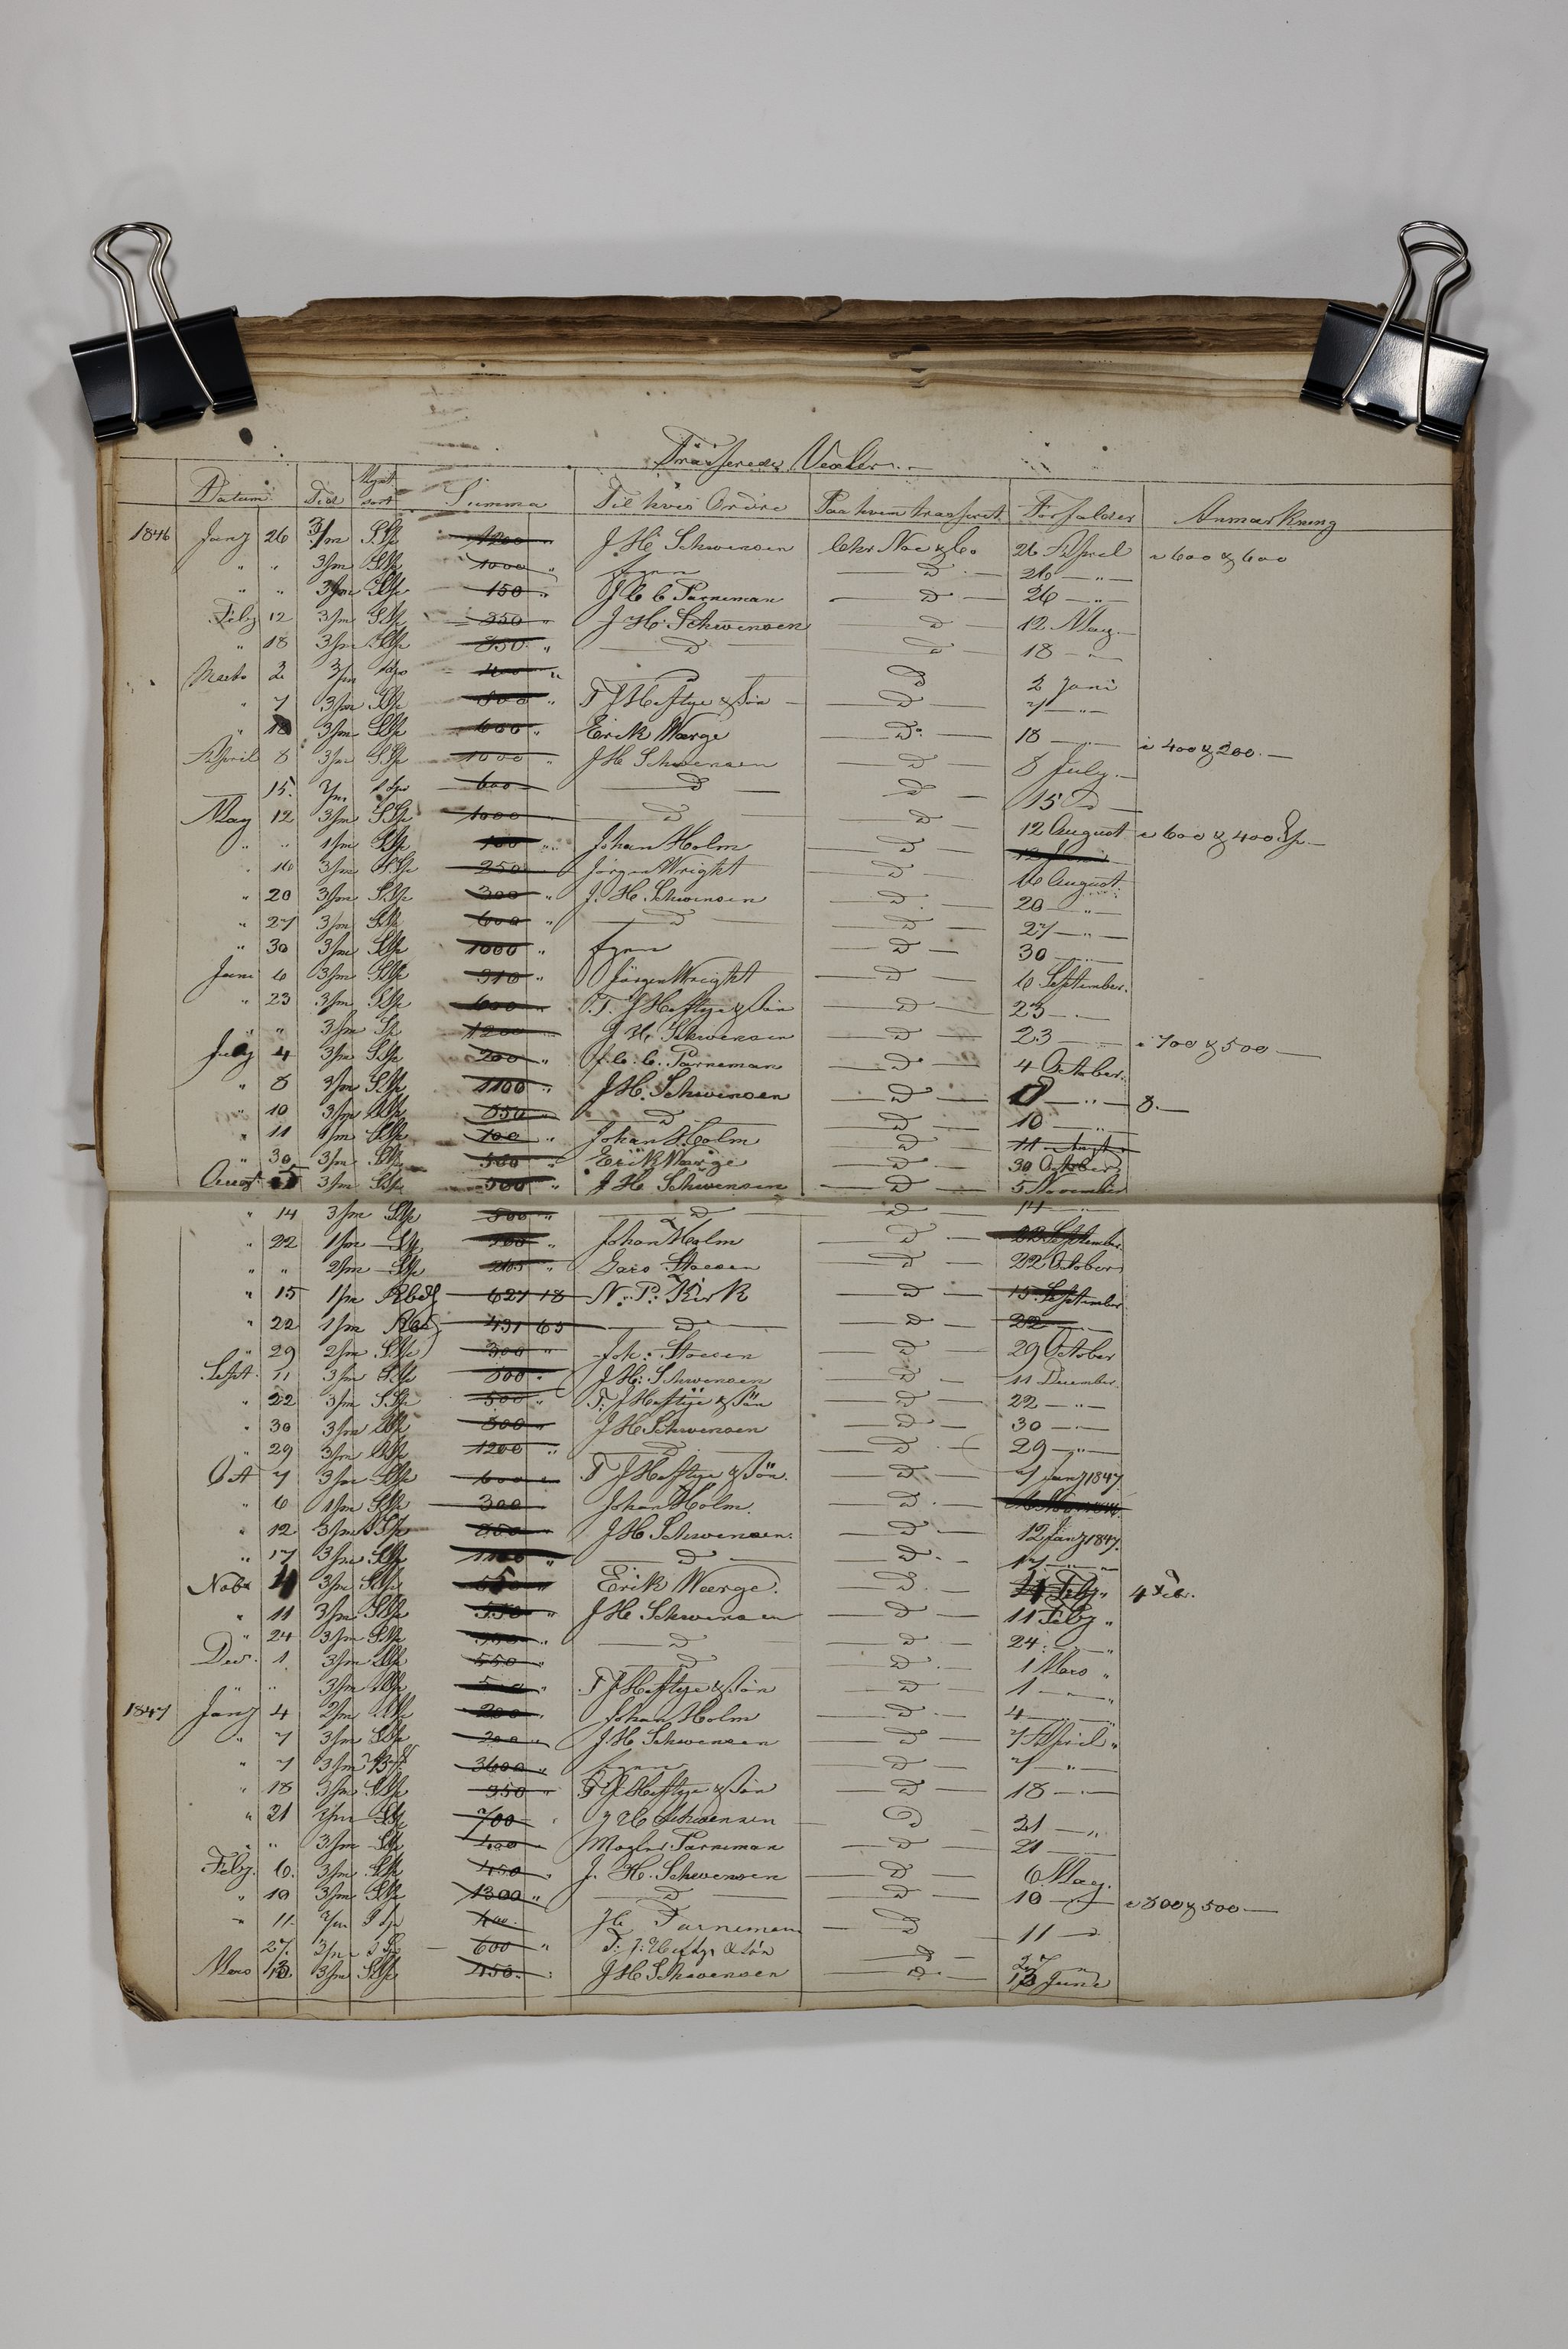 Trasserede Vexler
Datum Tid Mynt sort Summa Til hvis Ordre Paa hvem trasseret Forfalder Anmærkning
1846 Janʒ 26 3/m SSp 1200 J H Schwensen Chr Noe & Co 26 April a 600 & 600
" " 3/m SSp 1000 " D 26 "
" " 3/m SSp 150 " J C C Parneman D 26 "
Feby 12 3/m SSp 350 " J H Schwensen D 12 May
" 18 3/m SSp 850 " D D 18 "
Marts 2 3/m 400 " D D 2 Juni
" 7 3/m SSp 800 " T J Heftye & Søn D 7 "
" 18 3/m SSp 600 " Erik Wærge D 18 a 400 & 200
April 8 3/m SSp 1000 " J H Schwensen D 8 July
15 600 D D 15 D
May 12 3/m SSp 1000 D D 12 August a 600 & 400 Sp
" " 1/m SSp 100 " Johan Holm D 12 Juni
" 16 3/m SSp 250 Jörgen Wright D 16 August
" 20 3/m SSp 300 " J. H. Schwensen D 20 "
" 27 3/m SSp 600 " D D 27 "
" 30 3/m SSp 1000 " D 30
Juni 6 3/m SSp 310 " Jörgen Wright D 6 September
" 23 3/m SSp 600 " T. J Heftye & Søn D 23
" " 3/m Sp 1200 J H. Schwensen D 23 a 700 & 500
July 4 3/m SSp 200 " J. C. C. Parneman D 4 October
" 8 3/m SSp 1100 " J H. Schwensen D " 8.
" 10 3/m SSp 850 " D D 10 "
" 11 1/m SSp 100 " Johan Holm D 11
" 30 3/m SSp 500 " Erik Wærge D 30 October
August 5 3/m SSp 500 " J H Schwensen D 5 November
" 14 3/m SSp 500 " D D 14 "
" 22 1/m SSp " Johan Holm D 22 September
" " 2/m SSp 265 " Lars Stoesen D 22 October
" 15 1/m Rbd 621 18 N. P. Kirk D 15 September
" 22 1/m Rbd 431 65 D D 22
" 29 2/m SSp 300 " Joh: Stoesen D 29 October
Sept. 11 3/m SSp 800 " J H: Schwensen D 11 December
" 22 3/m SSp 500 " T. J Heftye & Søn D 22 "
" 30 3/m SSp 800 " J H Schwensen D 30 "
" 29 3/m SSp 1200 " D D 29 "
Oct 7 3/m SSp 600 T J Heftye & Søn. D 7 Janʒ 1847
" 6 1/m SSp 300 Johan Holm. D
" 12 3/m SSp " J H Schwensen. D 12 Janʒ 1847
" 17 3/m SSp 1100 " D D 17 "
Nobr 4 3/m SSp " Erik Wærge. D Feby " 4 Feb.
" 11 3/m SSp 550 " J H Schwensen D 11 Feby "
" 24 3/m SSp " D D 24 "
Dec. 1 3/m SSp 550 " D D 1 Mars "
" " 3/m SSp 500 " T J Heftye & Søn D 1 "
1847 Janʒ 4 2/m SSp 200 " Johan Holm D 4 "
" 7 3/m SSp 200 " J H Schwensen D 7 April "
" 7 3/m 3600 " D 7 "
" 18 3/m SSp 350 " T J Heftye & Søn D 18
" 21 3/m SSp 700 J H Schwensen D 21 "
" " 3/m SSp 400 Parneman D 21
Feby. 6. 3/m SSp 450 " J. H. Schwensen D 6 May.
" 10 3/m SSp 1300 " D D 10 a 800 & 500
" 11 400 Parneman D 11
27. 3/m 600 " T. J. Heftye & Søn D 27 "
Mars 13 3/m SSp 450. J H Schwensen D 13 June